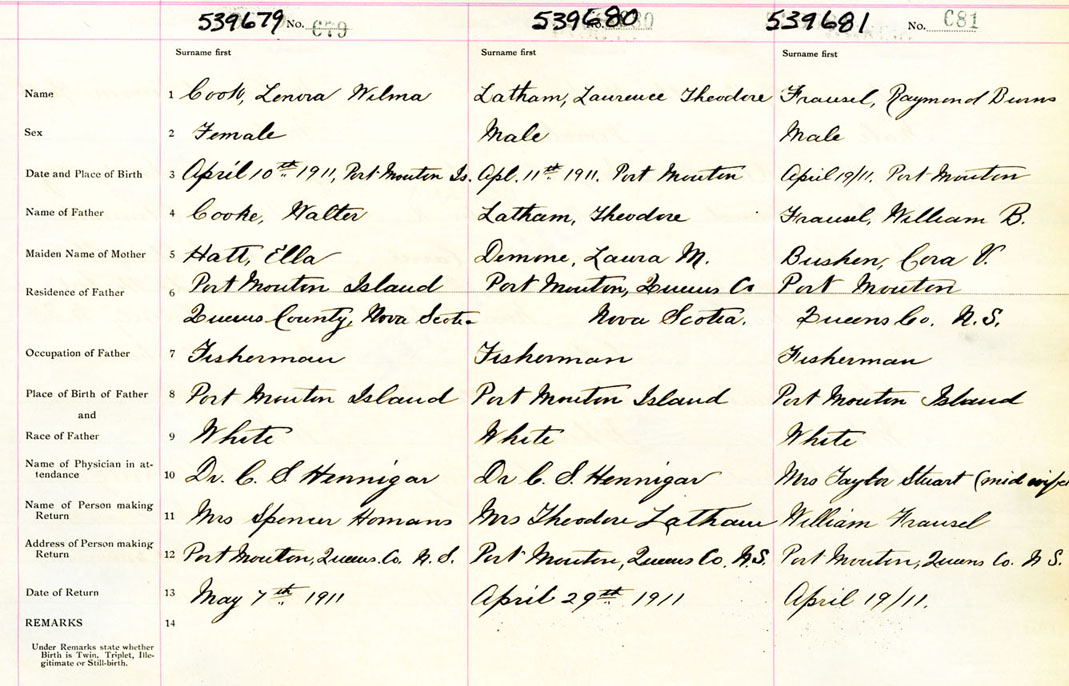 539679 No. C79 539680 No. 539681 No. C81
Surname first Surname first Surname first
Name 1 Cook, Lenora Wilma Latham, Laurence Theodore Frausel, Raymond Burns
Sex 2 Female Male Male
Date and Place of Birth 3 April 10th 1911, Port Mouton Is. Apl. 11th 1911. Port Mouton April 19/11. Port Mouton
Name of Father 4 Cooke, Walter Latham, Theodore Frausel, William B.
Maiden Name of Mother 5 Hatt, Ella Demone, Laura M. Bushen, Cora V.
Residence of Father 6 Port Mouton Island Port Mouton, Queens Co Port Mouton
Queens County, Nova Scotia Nova Scotia. Queens Co. N.S.
Occupation of Father 7 Fisherman Fisherman Fisherman
Place of Birth of Father 8 Port Mouton Island Port Mouton Island Port Mouton Island
and
Race of Father 9 White White White
Name of Physician in at-
tendance 10 Dr. C. S. Hennigar Dr C. S. Hennigar Mrs Taylor Stuart (mid wife
Name of Person making
Return 11 Mrs Spencer Homans Mrs Theodore Latham William Frausel
Address of Person making
Return 12 Port Mouton, Queens. Co. N. S. Port Mouton, Queens Co. N.S. Port Mouton, Queens Co. N S.
Date of Return 13 May 7th 1911 April 29th 1911 April 19/11.
REMARKS 14
Under Remarks state whether
Birth is Twin, Triplet, Ille-
gitimate or Still-birth.